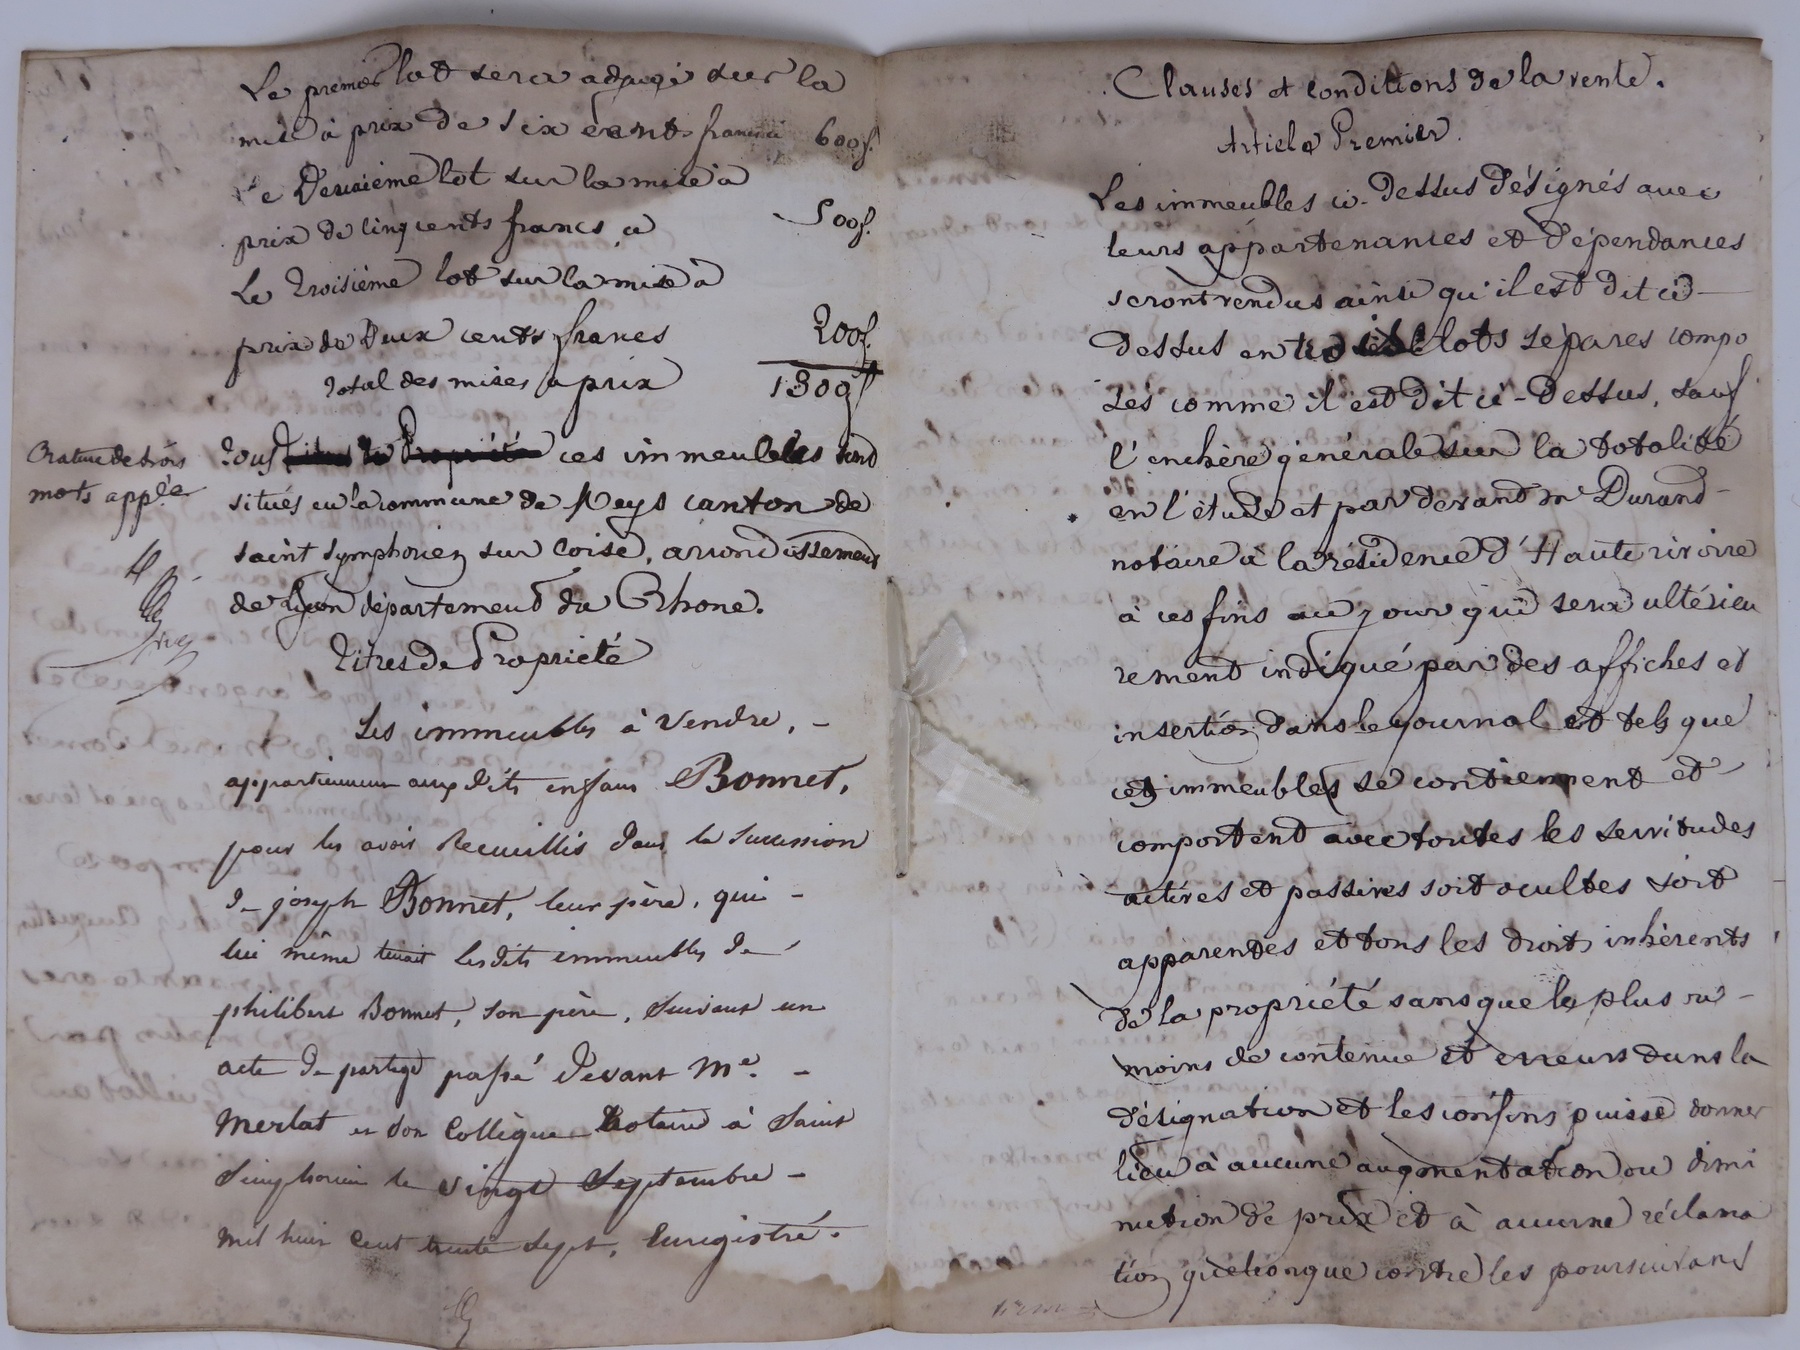 Le premier lot sera adjugé sur la
mise à prix de six cents francs ci 600f.
Le Deuxième lot sur la mise à
prix de cinq cents francs, ci 500f.
Le Troisième lot sur la mise à
prix de Deux cents francs 200f.
Total des mises à prix 1300f
Rature de trois
mots app.ée
Tous Titres de Propriété ces immeubles sont
situés en la commune de Meys canton de
saint Symphorien sur Coise, arrondissement
de Lyon département du Rhone.
Titres de Propriété
Les immeubles à vendre, -
appartiennent aux dits enfans Bonnet,
pour les avoir Recueillis dans la Succession
De joseph Bonnet, leur père, qui -
lui même tenait les dits immeubles de
philibert Bonnet, son père, Suivant un
acte De partage passé Devant Me. -
Merlat et son Collègue Notaire à Saint
Simphorien le vingt Septembre -
mil huit cent trente sept, Enregistré.
Clauses et conditions de la vente.
Article Premier.
Les immeubles ci-Dessus Désignés avec
leurs appartenances et Dépendances
seront vendus ainsi qu'il est Dit ci-
Dessus en trois lots séparés compo
sés comme il est Dit ci-Dessus, sauf
l'enchère générale sur la totalité
en l'étude et par devant me Durand-
notaire à la résidence d'Haute rivoire
à ces fins au jour qui sera ultérieu
rement indiqué par des affiches et
insertion dans le journal et tels que
ces immeubles se contiennent et
comportent avec toutes les servitudes
actives et passives soit ocultes soit
apparentes et tous les droits inhérents
de la propriété sans que le plus ou -
moins de contenue et erreurs dans la
désignation et les confins puisse donner
lieu à aucune augmentation ou dimi
nution de prix et à aucune réclama
tion quelconque contre les poursuivans